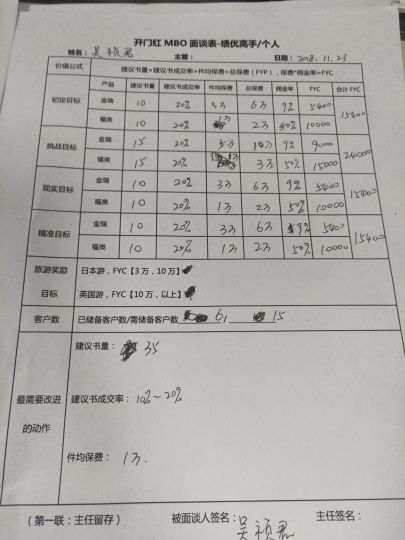 开门红 MBO 面谈表-绩优高手/个人
姓名: 吴祯 主管: 日期: 2018.11.23
价值公式 建议书量×建议书成交率×件均保费=总保费(FYP),保费*佣金率=FYC
产品 建议书量 建议书成交率 件均保费 总保费 佣金率 FYC 合计 FYC
初定目标 金瑞 10 20% 3万 6万 9% 5400 15400
福类 10 20% 1万 2万 50% 10000
挑战目标 金瑞 15 20% 5万 10万 9% 9000 24000
福类 15 20% 1万 3万 50% 15000
现实目标 金瑞 10 20% 3万 6万 9% 5400 15400
福类 10 20% 1万 2万 50% 10000
精准目标 金瑞 10 20% 3万 6万 9% 5400 15400
福类 10 20% 1万 2万 50% 10000
旅游奖励 日本游,FYC【3万,10万】
目标 英国游,FYC【10万,以上】
客户数 已储备客户数/需储备客户数 6, 15
建议书量: 35
最需要改进 建议书成交率: 10%~20%
的动作
件均保费: 1万.
(第一联:主任留存) 被面谈人签名: 吴祯 主任签名: